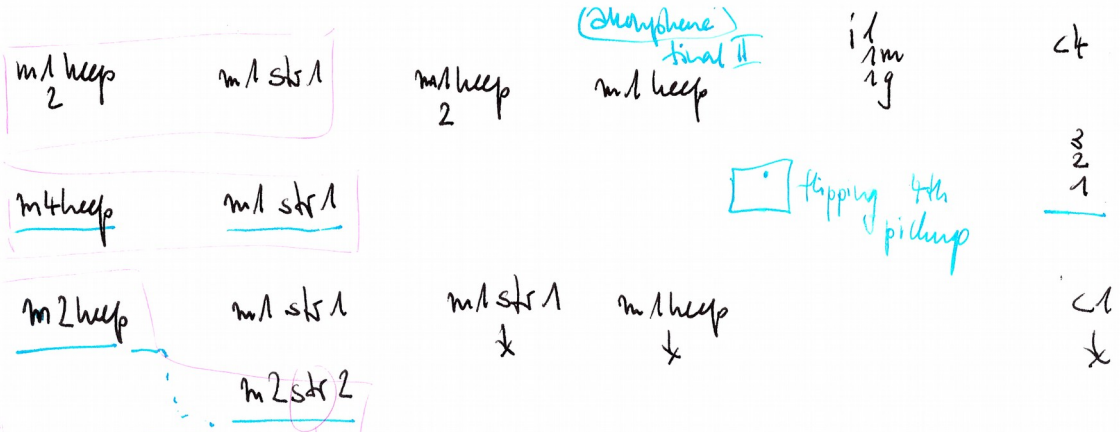 final II
i1
1m
1g
c4
m1 heep
2
m1 str1
m1heep
2
m1 heep
3
2
1
m4heep
m1 str1
flipping 4th
pickup
m2heep
m1 str1
m1str1
m1heep
c1
m2str2